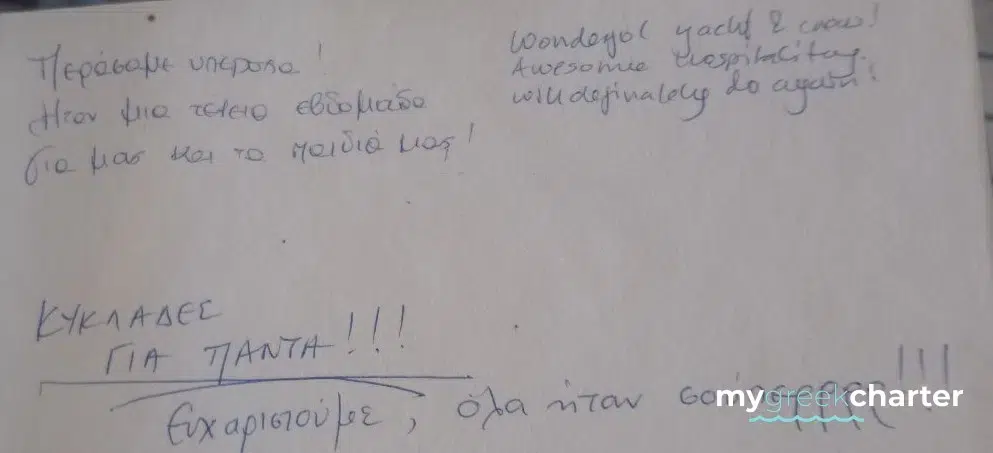 Περάσαμε υπέροχα!
Ηταν μια τέλεια εβδομάδα
για μας και τα παιδιά μας!
Wonderful yacht & crew!
Awesome Hospitality.
will definately do again!
ΚΥΚΛΑΔΕΣ
ΓΙΑ ΠΑΝΤΑ!!!
Ευχαριστούμε, όλα ήταν !!!
mygreekcharter